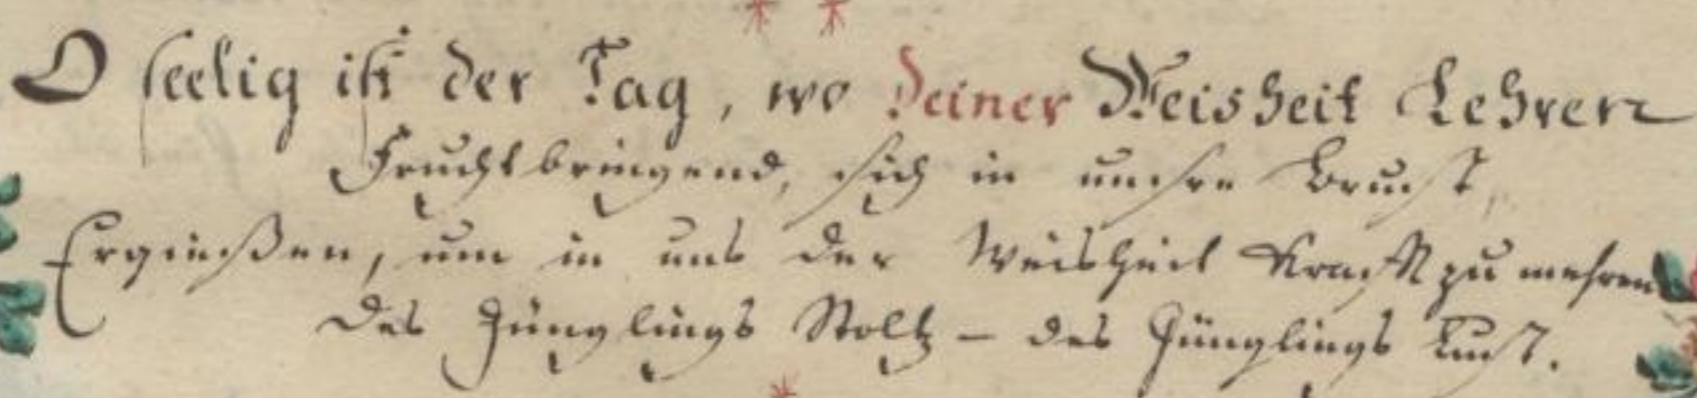 O seelig ist der Tag, wo Deiner Weisheit Lehren
Fruchtbringend, sich in unsre Brust,
Ergießen, um in uns der Weisheit Kraft zu mehren
Des Jünglings Stoltz – des Jünglings Lust.